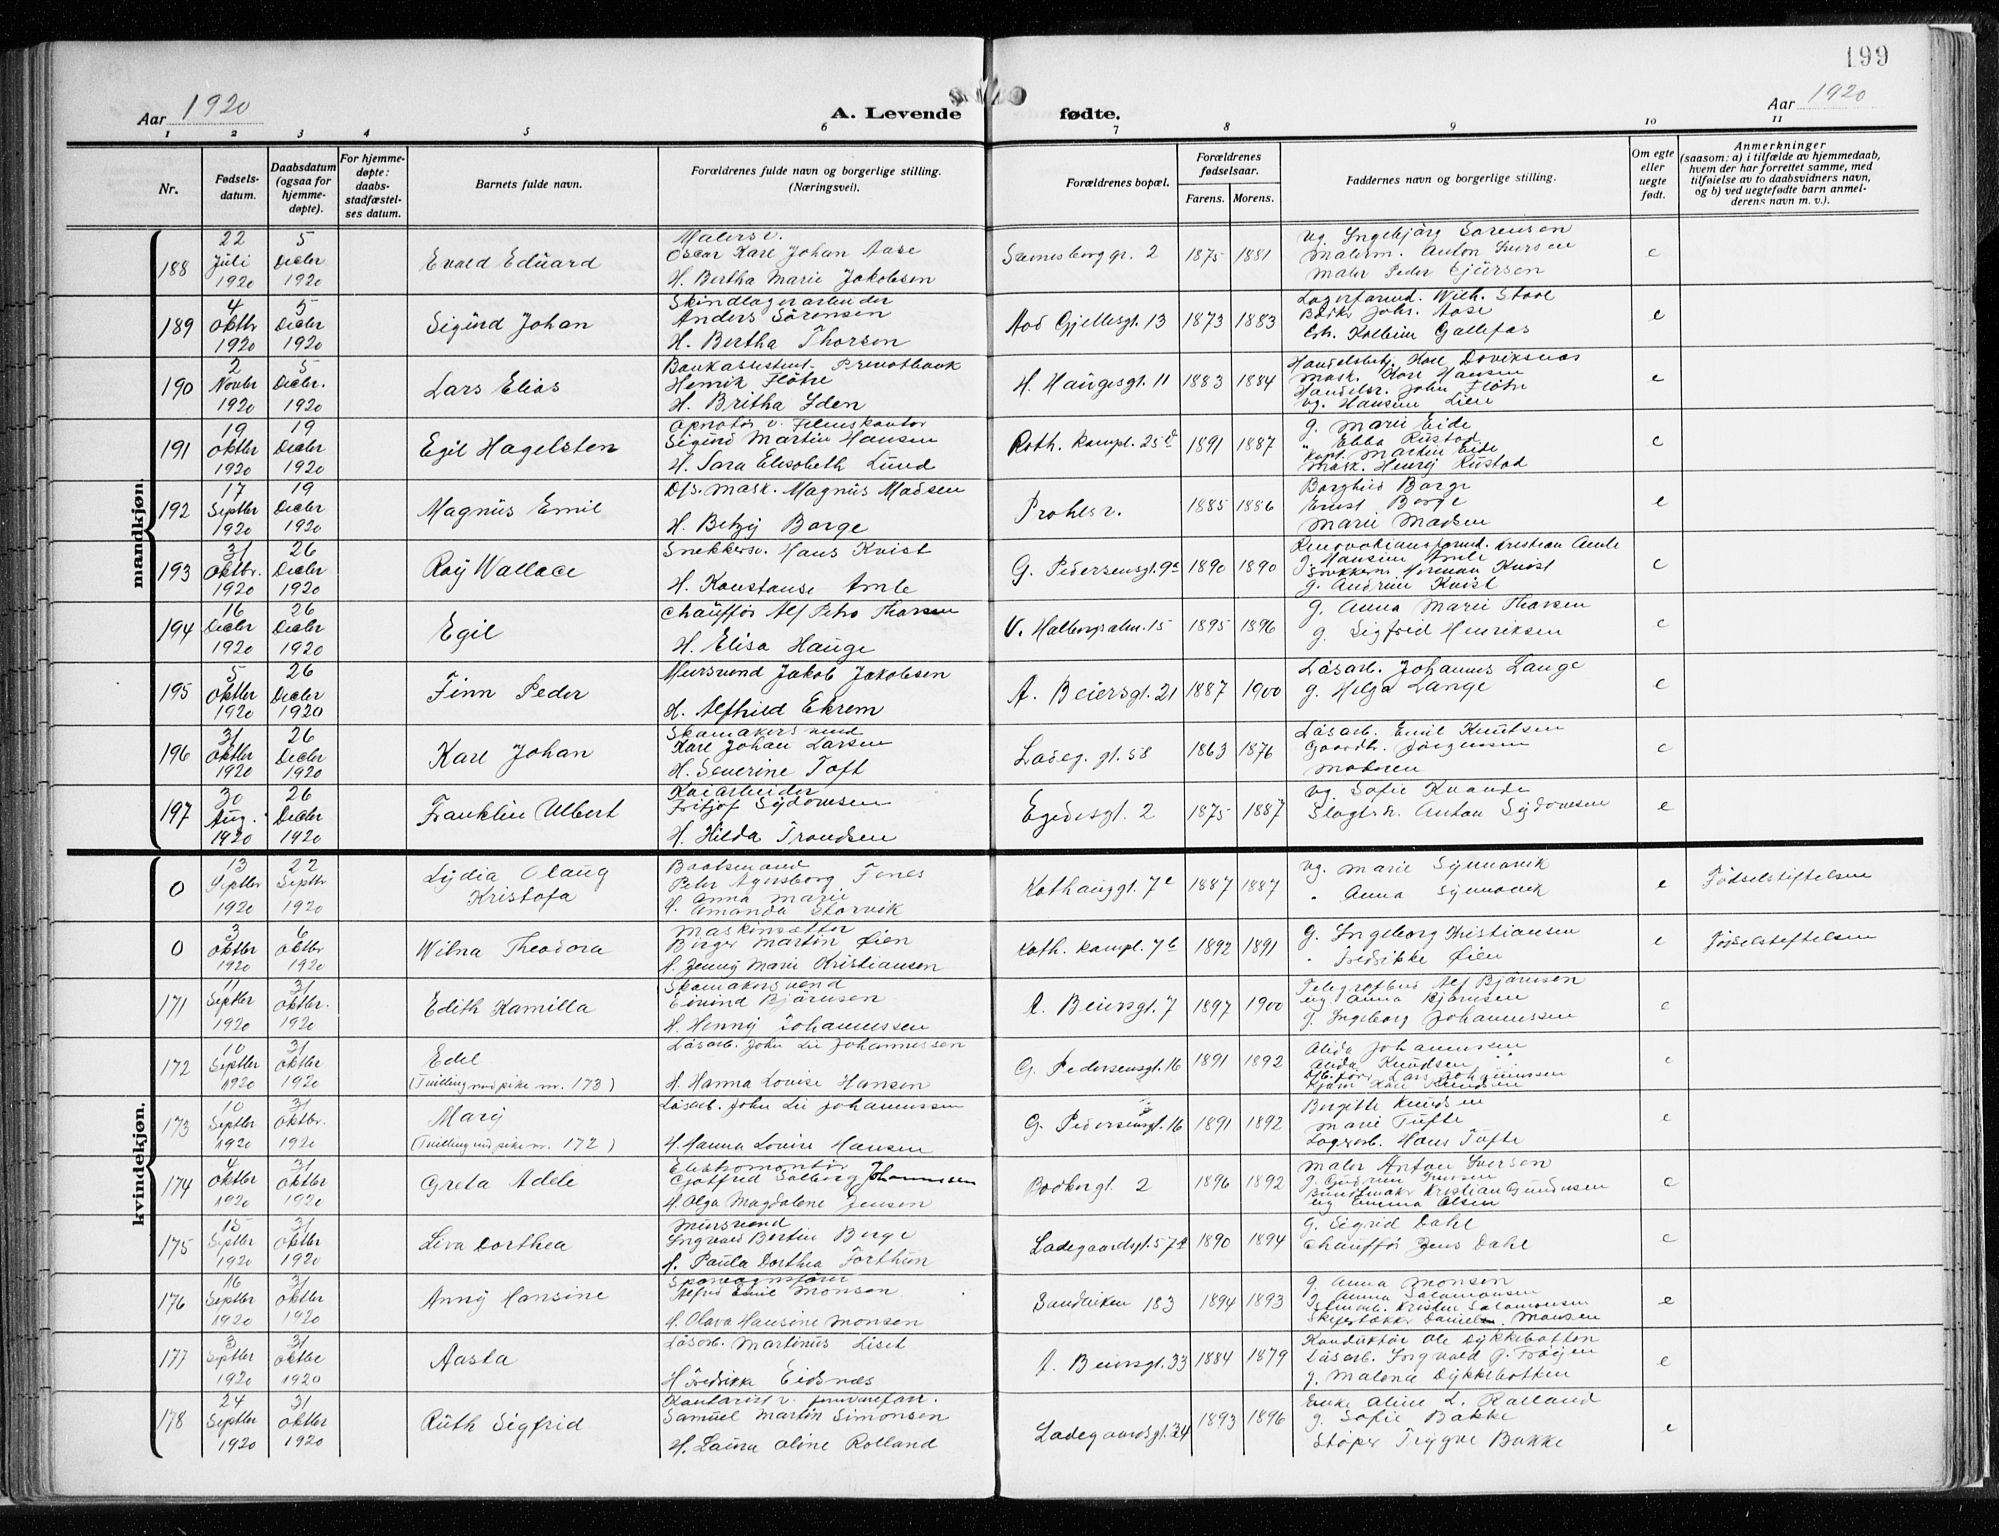 199
Aar 1920
A. Levende fødte.
Aar 1920
1 2 3 4 5 6 7 8 9 10 11
Nr.
Fødsels-
datum.
Daabsdatum
(ogsaa for
hjemme-
døpte).
For hjemme-
døpte:
daabs-
stadfæstel-
ses datum.
Barnets fulde navn.
Forældrenes fulde navn og borgerlige stilling.
(Næringsvei).
Forældrenes bopæl.
Forældrenes
fødselsaar.
Farens. Morens.
Faddernes navn og borgerlige stilling.
Om egte
eller
uegte
født.
Anmerkninger
(saasom: a) i tilfælde av hjemmedaab,
hvem der har forrettet samme, med
tilføielse av to daabsvidners navn,
og b) ved uegtefødte barn anmel-
derens navn m. v.).
mandkjøn.
188
22 Juli 1920
5 Decbr 1920
Evald Eduard
Malersv.
Oscar Karl Johan Aase
H. Bertha Marie Jakobsen
2 1875 1881
Vg. Ingebjørg Sørensen
Malerm. Anton Iversen
Maler Peder
e
189
4 Oktbr 1920
5 Decbr 1920
Sigurd Johan
Skindlagerarbeider
Anders Sørensen
H. Bertha Thorsen
Aad Gjellesgt. 13 1873 1883
Lagerformd. Wilh.
Johs. Aase
e
190
2 Novbr 1920
5 Decbr. 1920
Lars Elias
Bankassistent Privatbank
Henrik Fløtre
H. Britha Iden
H. Haugesgt. 11 1883 1884
Mask. Karl Hansen
Handelsr. John Fløtre
Vg. Hansine Lien
e
191
19 Oktbr 1920
19 Decbr 1920
Egil Hagelsten
Sigurd Martin Hansen
H. Sara Elisabeth Lund
Roth. kampl. 25d 1891 1887
g. Marie Eide
" Ebba Rustad
Kapt. Martin Eide
Mask. Henry Rustad
e
192
17 Septbr 1920
19 Decbr 1920
Magnus Emil
D/s. mask. Magnus Madsen
H. Betzy Borge
Prahlsv. 1885 1886
Borghild Borge
Ernst Borge
Marie Madsen
e
193
31 Oktbr. 1920
26 Decbr 1920
Roy Wallace
Snekkersv. Hans Kvist
H. Konstanse Amle
G. Pedersensgt. 9a 1890 1890
Renovationsformd. Kristian Amle
g. Hansine Amle
Snekkerm. Herman Kvist
g. Andrine Kvist
e
194
16 Decbr 1920
26 Decbr 1920
Egil
Chauffør Alf Petro Thorsen
H. Elisa Hauge
V. Holbergsalm. 15 1895 1896
g. Anna Marie Thorsen
g. Sigfrid Henriksen
e
195
5 Oktbr 1920
26 Decbr 1920
Finn Peder
Mursvend Jakob Jakobsen
H. Alfhild Ekrem
A. Beiersgt. 21 1887 1900
Løsarb. Johannes Lange
g. Helga Lange
e
196
31 Oktbr 1920
26 Decbr 1920
Karl Johan
Skomakersvend
Karl Johan Larsen
H. Severine Toft
Ladeg. gt. 58 1863 1876
Løsarb. Emil Knutsen
Gaardbr. Jørgensen
Moderen
e
197
30 Aug. 1920
26 Decbr 1920
Franklin Albert
Kaiarbeider
Fritjof Sydonesen
H. Hilda Trondsen
Egedesgt. 2 1875 1887
Vg. Sofie Kvande
Anton Sydonesen
e
kvindekjøn.
0
13 Septbr 1920
22 Septbr 1920
Lydia Olaug
Kristofa
Baatsmand
Peter Fones
H. Anna Marie
Amanda Storvik
Kothauggt. 7c 1887 1887
Vg. Marie Synnavik
" Anna Synnavik
e Fødselstiftelsen
0
3 Oktbr 1920
6 Oktbr 1920
Wilna Theodora
Maskinsætter
Birger Martin Øien
H. Jenny Marie Kristiansen
Roth. kampl. 7b 1892 1891
g. Ingeborg Kristiansen
" Fredrikke Øien
e Fødselstiftelsen
171
11 Septbr 1920
31 Oktbr. 1920
Edith Kamilla
Skomakersvend
Eivind Bjørnsen
H. Henny Johannessen
A. Beiersgt. 7 1897 1900
Telegrafbud Alf Bjørnsen
ug. Anna Bjørnsen
g. Ingeborg Johannessen
e
172
10 Septbr 1920
31 Oktbr 1920
Edel
(Tvilling med pike nr. 173)
Løsarb. John Lie Johannessen
H. Hanna Lovise Hansen
G. Pedersensgt. 16 1891 1892
Alida Johannessen
Alida Knudsen
Lars Johannessen
Karl Knudsen
e
173
10 Septbr 1920
31 Oktbr. 1920
Mary
(Tvilling med pike nr. 172)
Løsarb. John Lie Johannessen
H. Hanna Lovise Hansen
G. Pedersensgt. 16 1891 1892
Birgitte Knudsen
Marie Tufte
Lagerarb. Hans Tufte
e
174
4 Oktbr 1920
31 Oktbr 1920
Greta Adele
Elektromontør
Gotfred Solberg Johannesen
H. Olga Magdalene Jensen
Bødkergt. 2 1896 1892
Maler Anton Iversen
g. Gudrun Iversen
Buntmaker Kristian Gundersen
ug Emma Olsen
e
175
15 Septbr 1920
31 Oktbr 1920
Liva Dorthea
Mursvend
Ingvald Bertin Berge
H. Paula Dorthea Forthun
Ladegaardsgt. 57a 1890 1894
g. Sigrid Dahl
Chauffør Jens Dahl
e
176
16 Septbr 1920
31 Oktbr 1920
Anny Hansine
Sporvognsfører
Alfred Emil Monsen
H. Olava Hansine Monsen
Sandviken 183 1894 1893
g. Anna Monsen
g. Anna Salamonsen
Kristen Salamonsen
Daniel Monsen
e
177
3 Septbr 1920
31 Oktbr 1920
Aasta
Løsarb. Martinus Liset
H. Fredrikka Eidsnæs
A. Beiersgt. 33 1884 1879
Konduktør Ole Dykkebotten
Løsarb. Ingvald G. Frøyen
g. Malena Dykkebotten
e
178
24 Septbr 1920
31 Oktbr 1920
Ruth Sigfrid
Samuel Martin Simonsen
H. Laura Oline Rolland
Ladegaardsgt. 34 1893 1896
Enke Oline L. Rolland
g. Sofie Bakke
Støper Trygve Bakke
e